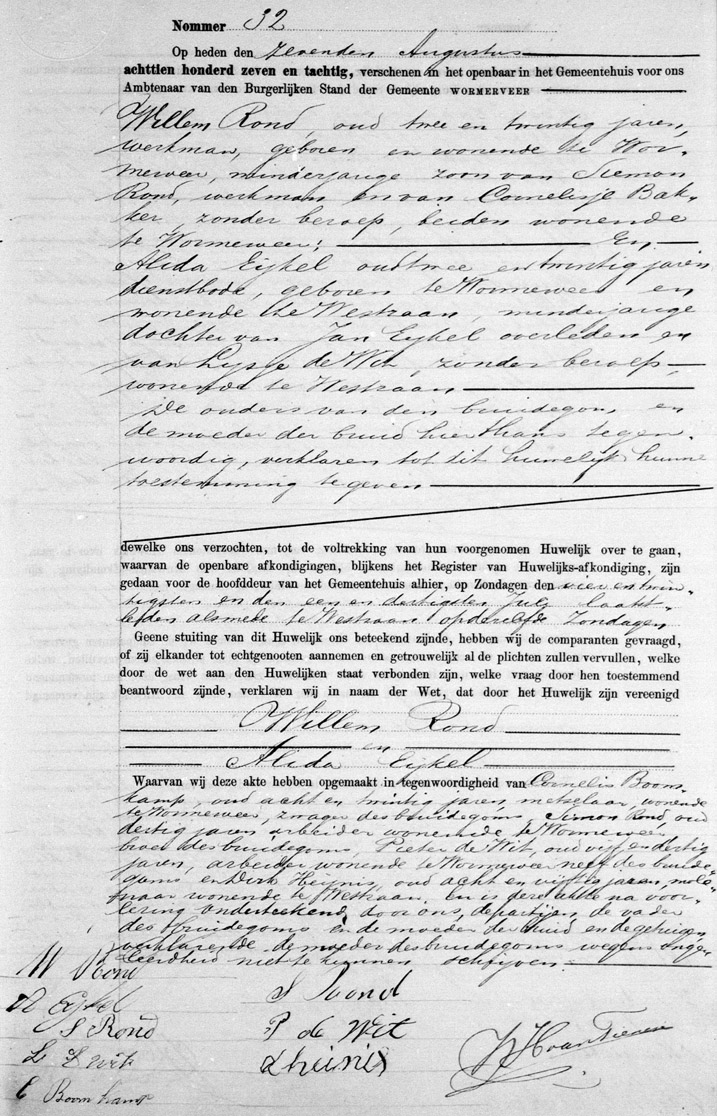 Nommer 32
Op heden den zevenden Augustus
achttien honderd zeven en tachtig, verschenen in het openbaar in het Gemeentehuis voor ons
Ambtenaar van den Burgerlijken Stand der Gemeente WORMERVEER
Willem Rond, oud twee en twintig jaren,
werkman, geboren en wonende te Wor-
meweer, minderjarige zoon van Siemon
Rond, werkman en van Cornelisje Bak-
ker, zonder beroep, beiden wonende
te Wormeweer; En
Alida Eijkel oud twee en twintig jaren
dienstbode, geboren te Wormeweer en
wonende te Westzaan, minderjarige
dochter van Jan Eijkel overleden en
van Lijsje de Wit, zonder beroep,
wonende te Westzaan
De ouders van den bruidegom, en
de moeder der bruid hier thans tegen-
woordig, verklaren tot dit huwelijk hunne
toestemming te geven
dewelke ons verzochten, tot de voltrekking van hun voorgenomen Huwelijk over te gaan,
waarvan de openbare afkondigingen, blijkens het Register van Huwelijks-afkondiging, zijn
gedaan voor de hoofddeur van het Gemeentehuis alhier, op Zondagen den vier en twin-
tigsten en den een en dertigsten Julij laatst-
leden alsmede te Westzaan op dezelfde Zondagen
Geene stuiting van dit Huwelijk ons beteekend zijnde, hebben wij de comparanten gevraagd,
of zij elkander tot echtgenooten aannemen en getrouwelijk al de plichten zullen vervullen, welke
door de wet aan den Huwelijken staat verbonden zijn, welke vraag door hen toestemmend
beantwoord zijnde, verklaren wij in naam der Wet, dat door het Huwelijk zijn vereenigd
Willem Rond
en
Alida Eijkel
Waarvan wij deze akte hebben opgemaakt in tegenwoordigheid van Cornelis Boom-
kamp, oud acht en twintig jaren, metselaar, wonende
te Wormeweer, zwager des bruidegoms, Siemon Rond, oud
dertig jaren arbeider wonende te Wormeweer
broer des bruidegoms, Pieter de Wit, oud vijf en dertig
jaren, arbeider wonende te Wormeweer neef des bruide-
goms en Dirk Heijnis, oud acht en vijftig jaren, mole-
naar wonende te Westzaan. En is deze akte na voor-
lezing onderteekend door ons, de partijen, de vader
des bruidegoms en de moeder der bruid en de getuigen
verklarende de moeder des bruidegoms wegens onge-
leerdheid niet te kunnen schrijven
W Rond
A Eijkel
S Roond
S Rond
P de Wit
L d Wit
d heinis
C Boomkamp